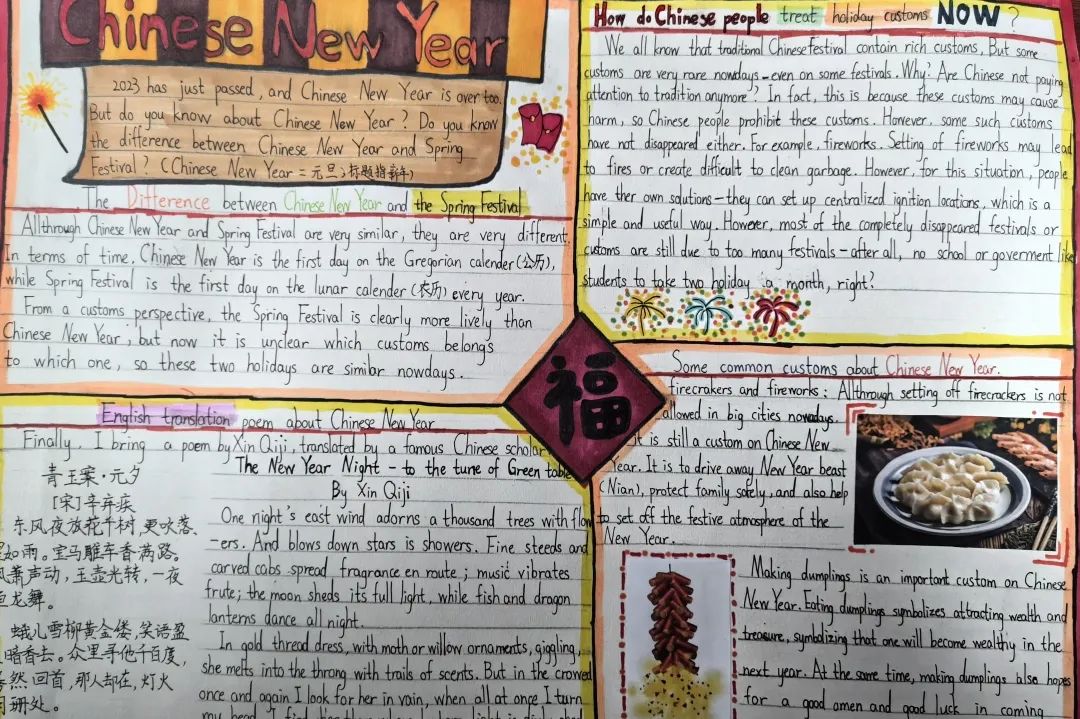 Chinese New Year
2023 has just passed, and Chinese New Year is over too.
But do you know about Chinese New Year? Do you know
the difference between Chinese New Year and Spring
Festival? (Chinese New Year = 元旦;标题指新年)
The Difference between Chinese New Year and the Spring Festival
Allthrough Chinese New Year and Spring Festival are very similar, they are very different.
In terms of time, Chinese New Year is the first day on the Gregorian calender(公历),
while Spring Festival is the first day on the lunar calender (农历) every year.
From a customs perspective, the Spring Festival is clearly more lively than
Chinese New Year, but now it is unclear which customs belongs
to which one, so these two holidays are similar nowdays.
English translation poem about Chinese New Year
Finally, I bring a poem by Xin Qiji, translated by a famous Chinese scholar
青玉案·元夕
[宋]辛弃疾
东风夜放花千树,更吹落、
如雨。宝马雕车香满路。
风箫声动,玉壶光转,一夜
龙舞。
蛾儿雪柳黄金缕,笑语盈
暗香去。众里寻他千百度,
然回首,那人却在,灯火
珊处。
The New Year Night - to the tune of Green table
By Xin Qiji
One night's east wind adorns a thousand trees with flow
-ers. And blows down stars is showers. Fine steeds and
carved cabs spread fragrance en route; music vibrates
frute; the moon sheds its full light, while fish and dragon
lanterns dance all night.
In gold thread dress, with moth or willow ornaments, giggling,
she melts into the throng with trails of scents. But in the crowed
once and again I look for her in vain, when all at once I turn
my head, I find
福
How do Chinese people treat holiday customs NOW?
We all know that traditional Chinese Festival contain rich customs. But some
customs are very rare nowdays - even on some festivals. Why? Are Chinese not paying
attention to tradition anymore? In fact, this is because these customs may cause
harm, so Chinese people prohibit these customs. However, some such customs
have not disappeared either. For example, fireworks. Setting of fireworks may lead
to fires or create difficult to clean garbage. However, for this situation, people
have ther own solutions - they can set up centralized ignition locations, which is a
simple and useful way. However, most of the completely disappeared festivals or
customs are still due to too many festivals - after all, no school or goverment like
students to take two holiday a month, right?
Some common customs about Chinese New Year.
firecrakers and fireworks: Allthrough setting off firecrackers is not
allowed in big cities nowadays.
It is still a custom on Chinese New
Year. It is to drive away New Year beast
(Nian), protect family safely, and also help
to set off the festive atmosphere of the
New Year.
Making dumplings is an important custom on Chinese
New Year. Eating dumplings symbolizes attracting wealth and
treasure, symbolizing that one will become wealthy in the
next year. At the same time, making dumplings also hopes
for a good omen and good luck in coming